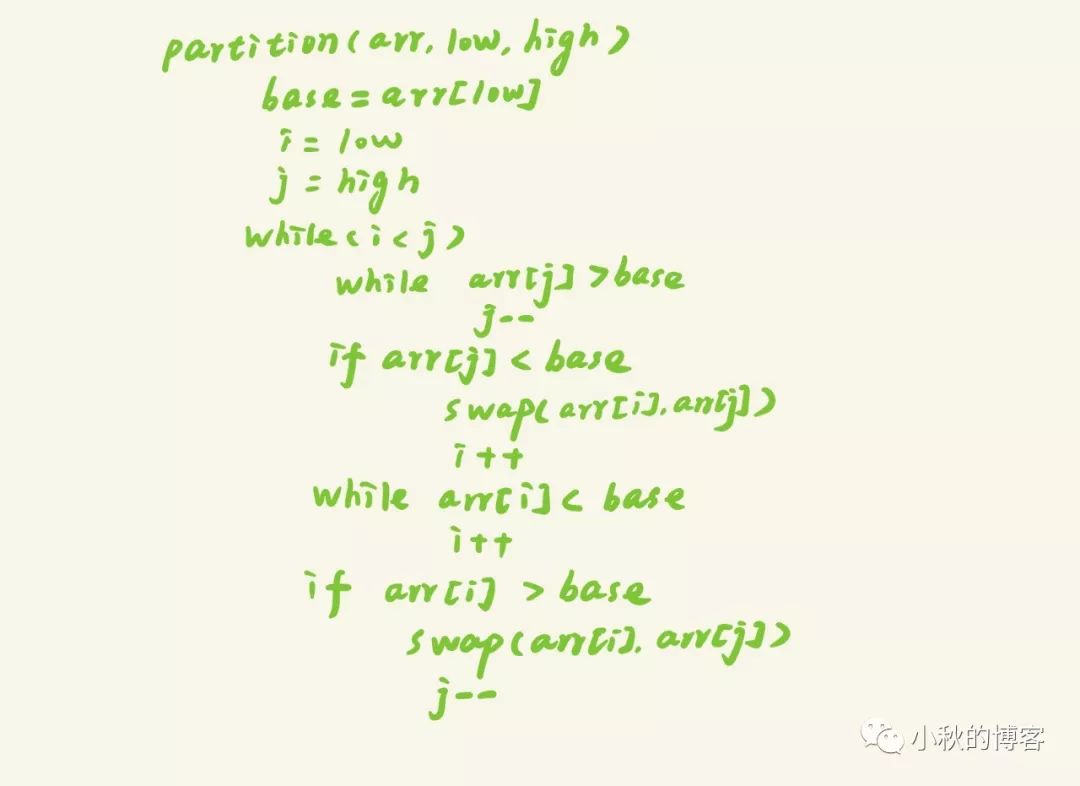 partition(arr, low, high)
base = arr[low]
i = low
j = high
while(i < j)
while arr[j] > base
j--
if arr[j] < base
swap(arr[i], arr[j])
i++
while arr[i] < base
i++
if arr[i] > base
swap(arr[i], arr[j])
j--
小秋的博客